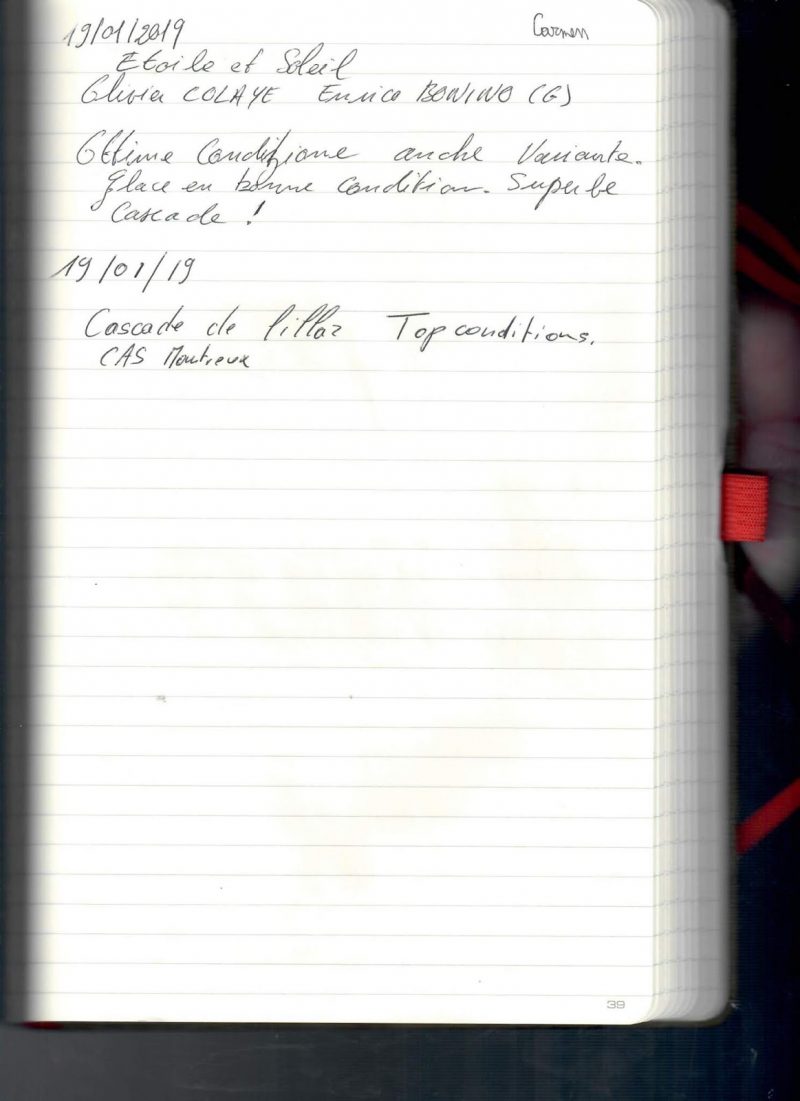 19/01/2019
Carmen
Etoile et Soleil
Olivier COLAYE Enrico BONINO (G)
Ottime Condizione anche Variante.
glace en bonne condition. Superbe
Cascade !
19/01/19
Cascade de lillaz Top conditions.
CAS Montreux
39